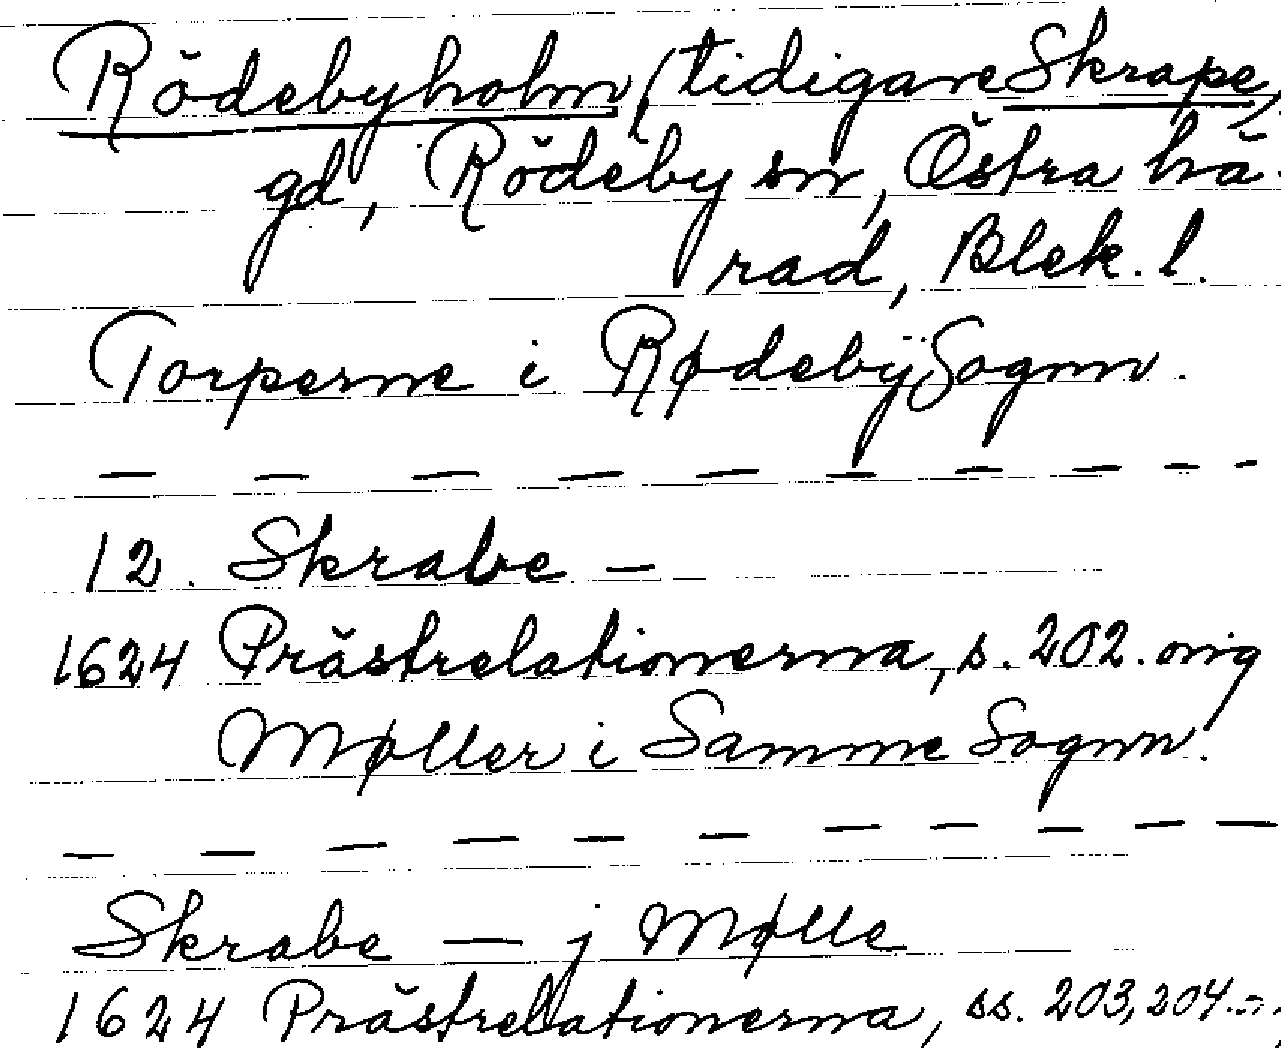 Rödebyholm, (tidigare Skrape,
gd, Rödeby sn, Östra hä-
rad, Blek. l.
Torperne i Rødebÿ Sognn.
— — — — — — — — — -
12. Skrabe —
1624 Prästrelationerna, s. 202. orig
Møller i Samme Sognn.
— — — — — — — — — —
Skrabe — j Mølle
1624 Prästrelationerna, ss. 203, 204.